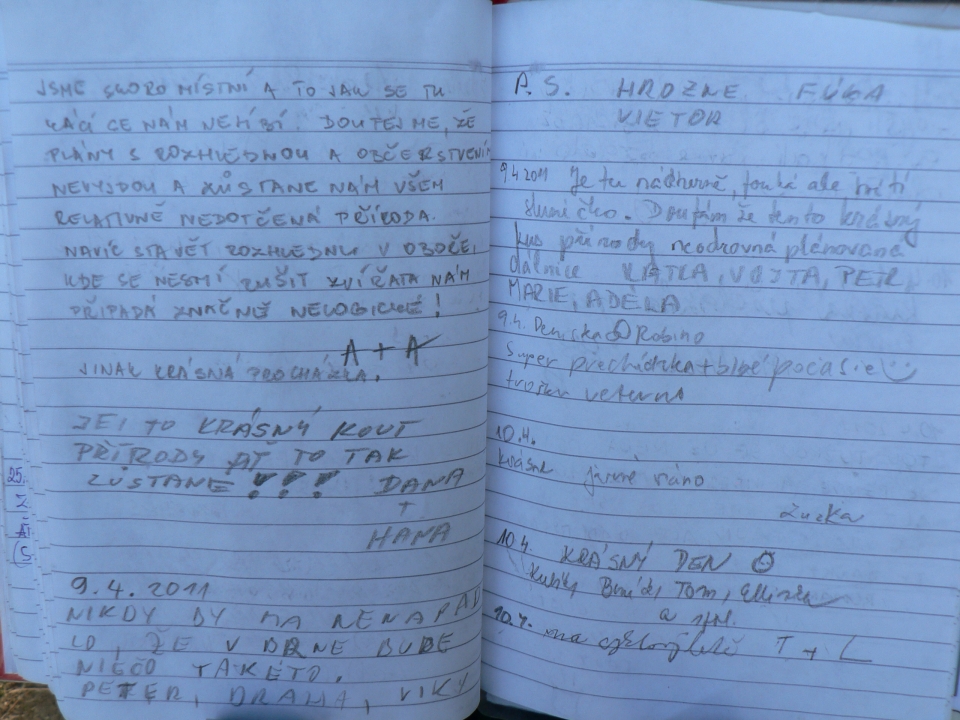 JSME SKORO MÍSTNÍ A TO JAK SE TU
KÁCÍ SE NÁM NELÍBÍ. DOUFEJME, ŽE
PLÁNY S ROZHLEDNOU A OBČERSTVENÍM
NEVYJDOU A ZŮSTANE NÁM VŠEM
RELATIVNĚ NEDOTČENÁ PŘÍRODA.
NAVÍC STAVĚT ROZHLEDNU V OBOŘE,
KDE SE NESMÍ RUŠIT ZVÍŘATA NÁM
PŘIPADÁ ZNAČNĚ NELOGICKÉ!
A + A
JINAK KRÁSNÁ PROCHÁZKA.
JE TO KRÁSNÝ KOUT
PŘÍRODY AŤ TO TAK
ZŮSTANE!!! DANA
+
HANA
9.4.2011
NIKDY BY MA NENAPAD
LO, ŽE V BRNE BUDE
NIEČO TAKÉTO.
PETER, DRAHA, VIKY
25.
P.S. HROZNE FÚKA
VIETOR
9.4.2011 Je tu nádherně, fouká ale svítí
sluníčko. Doufám že tento krásný
kus přírody neodrovná plánovaná
dálnice KATKA, VOJTA, PETR,
MARIE, ADÉLA
9.4. Deniska Robino
Super přechádzka + blbé počasie
trošku veterno
10.4.
Krásné jarní ráno
Zuzka
10.4. KRÁSNÝ DEN
Tom,
a spol.
10.4. na T + L